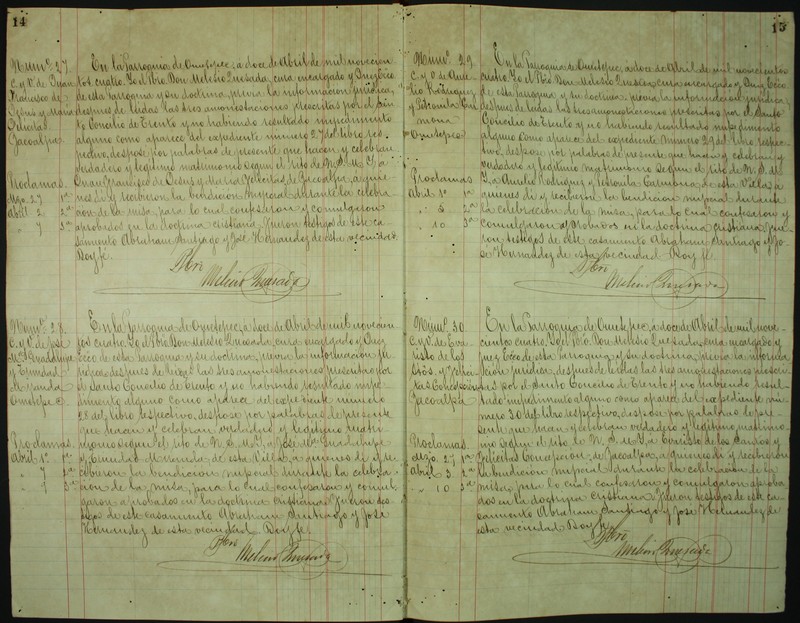 14
Num.º 27.
C. y V. de Juan
Francisco de
Jesus y Maria
Felicitas,
Jacoalpa
Proclamas.
Mzo. 27 1ª
Abril 2 2ª
" 7 3ª
En la Parroquia de Ometepec, a doce de Abril de mil novecien
tos cuatro. Yo el Pbro. Don Melesio Quesada, cura encargado y Juez Ecco
de esta parroquia y su doctrina, previa la informacion juridica,
despues de leidas las tres amonestaciones prescritas por el San
to Concilio de Trento y no habiendo resultado impedimento
alguno como aparece del expediente numero 27 del libro res
pectivo, despose por palabras de presente que hacen y celebran
verdadero y legitimo matrimonio segun el rito de N. S. M. Y. a
Juan Francisco de Jesus y Maria Felicitas, de Jacoalpa, a quie
nes di y recibieron la bendicion nupcial durante la celebra
cion de la misa, para lo cual confesaron y comulgaron
aprobados en la doctrina cristiana. Fueron testigos de este ca
samiento Abraham Santiago y José Hernandez de esta vecindad.
Doy fe.
Pbro.
Melesio Quesada
Num.º 28.
C. y V. de José
Mª Guadalupe
y Trinidad
Miranda
Ometepec
Proclamas.
Abril 1º 1ª
" 3 2ª
" 7 3ª
En la Parroquia de Ometepec, a doce de Abril de mil novecien
tos cuatro. Yo el Pbro. Don Melesio Quesada, cura encargado y Juez
Ecco de esta parroquia y su doctrina, previa la informacion ju
ridica, despues de leidas las tres amonestaciones prescritas por
el Santo Concilio de Trento y no habiendo resultado impe
dimento alguno como aparece del expediente numero
28 del libro respectivo, despose por palabras de presente
que hacen y celebran verdadero y legitimo matri
monio segun el rito de N. S. M. Y. a José Mª Guadalupe
y Trinidad Miranda de esta Villa, a quienes di y re
cibieron la bendicion nupcial durante la celebra
cion de la misa, para lo cual confesaron y comul
garon aprobados en la doctrina cristiana. Fueron tes
tigos de este casamiento Abraham Santiago y José
Hernandez de esta vecindad. Doy fe.
Pbro.
Melesio Quesada
15
Num.º 29
C. y V. de Aure
lio Rodriguez
y Petronila Car
mona
Ometepec
Proclamas
Abril 1º 1ª
" 3 2ª
" 10 3ª
En la Parroquia de Ometepec, a doce de Abril de mil novecientos
cuatro. Yo el Pbro. Don Melesio Quesada, cura encargado y Juez Ecco.
de esta parroquia y su doctrina, previa la informacion juridica,
despues de leidas las tres amonestaciones prescritas por el Santo
Concilio de Trento y no habiendo resultado impedimento
alguno como aparece del expediente numero 29 del libro respec
tivo, despose por palabras de presente que hacen y celebran y
verdadero y legitimo matrimonio segun el rito de N. S. M.
Y. a Aurelio Rodriguez y Petronila Carmona, de esta Villa, a
quienes di y recibieron la bendicion nupcial durante
la celebracion de la misa, para lo cual confesaron y
comulgaron aprobados en la doctrina cristiana. Fue
ron testigos de este casamiento Abraham Santiago y Jo
sé Hernandez de esta vecindad. Doy fe.
Pbro.
Melesio Quesada
Num.º 30
C. y V. de Eva
risto de los
Stos. y Felici
tas Concepcion
Jacoalpa
Proclamas.
Mzo. 27 1ª
Abril 3 2ª
" 10 3ª
En la Parroquia de Ometepec, a doce de Abril de mil nove
cientos cuatro. Yo el Pbro. Don Melesio Quesada, cura encargado y
Juez Ecco de esta parroquia y su doctrina, previa la informa
cion juridica, despues de leidas las tres amonestaciones prescri
tas por el Santo Concilio de Trento y no habiendo resul
tado impedimento alguno como aparece del expediente nu
mero 30 del libro respectivo, despose por palabras de pre
sente que hacen y celebran verdadero y legitimo matrimo
nio segun el rito de N. S. M. Y. a Evaristo de los Santos y
Felicitas Concepcion, de Jacoalpa, a quienes di y recibieron
la bendicion nupcial durante la celebracion de la
misa, para lo cual confesaron y comulgaron aproba
dos en la doctrina cristiana. Fueron testigos de este ca
samiento Abraham Santiago y José Hernandez de
esta vecindad. Doy fe.
Pbro.
Melesio Quesada